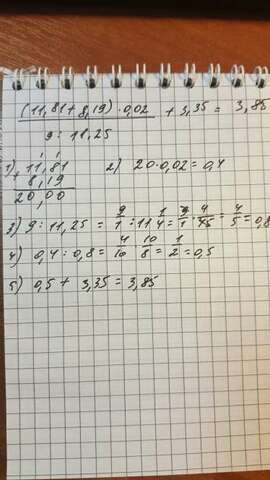 (11,81+8,19)·0,02 + 3,35 = 3,85
9 : 11,25
1) 11,81 2) 20·0,02=0,4
+ 8,19
20,00
3) 9 : 11,25 = 9/1 : 11 1/4 = 9/1 · 4/45 = 4/5 = 0,8
4) 0,4 : 0,8 = 4/10 · 10/8 = 1/2 = 0,5
5) 0,5 + 3,35 = 3,85